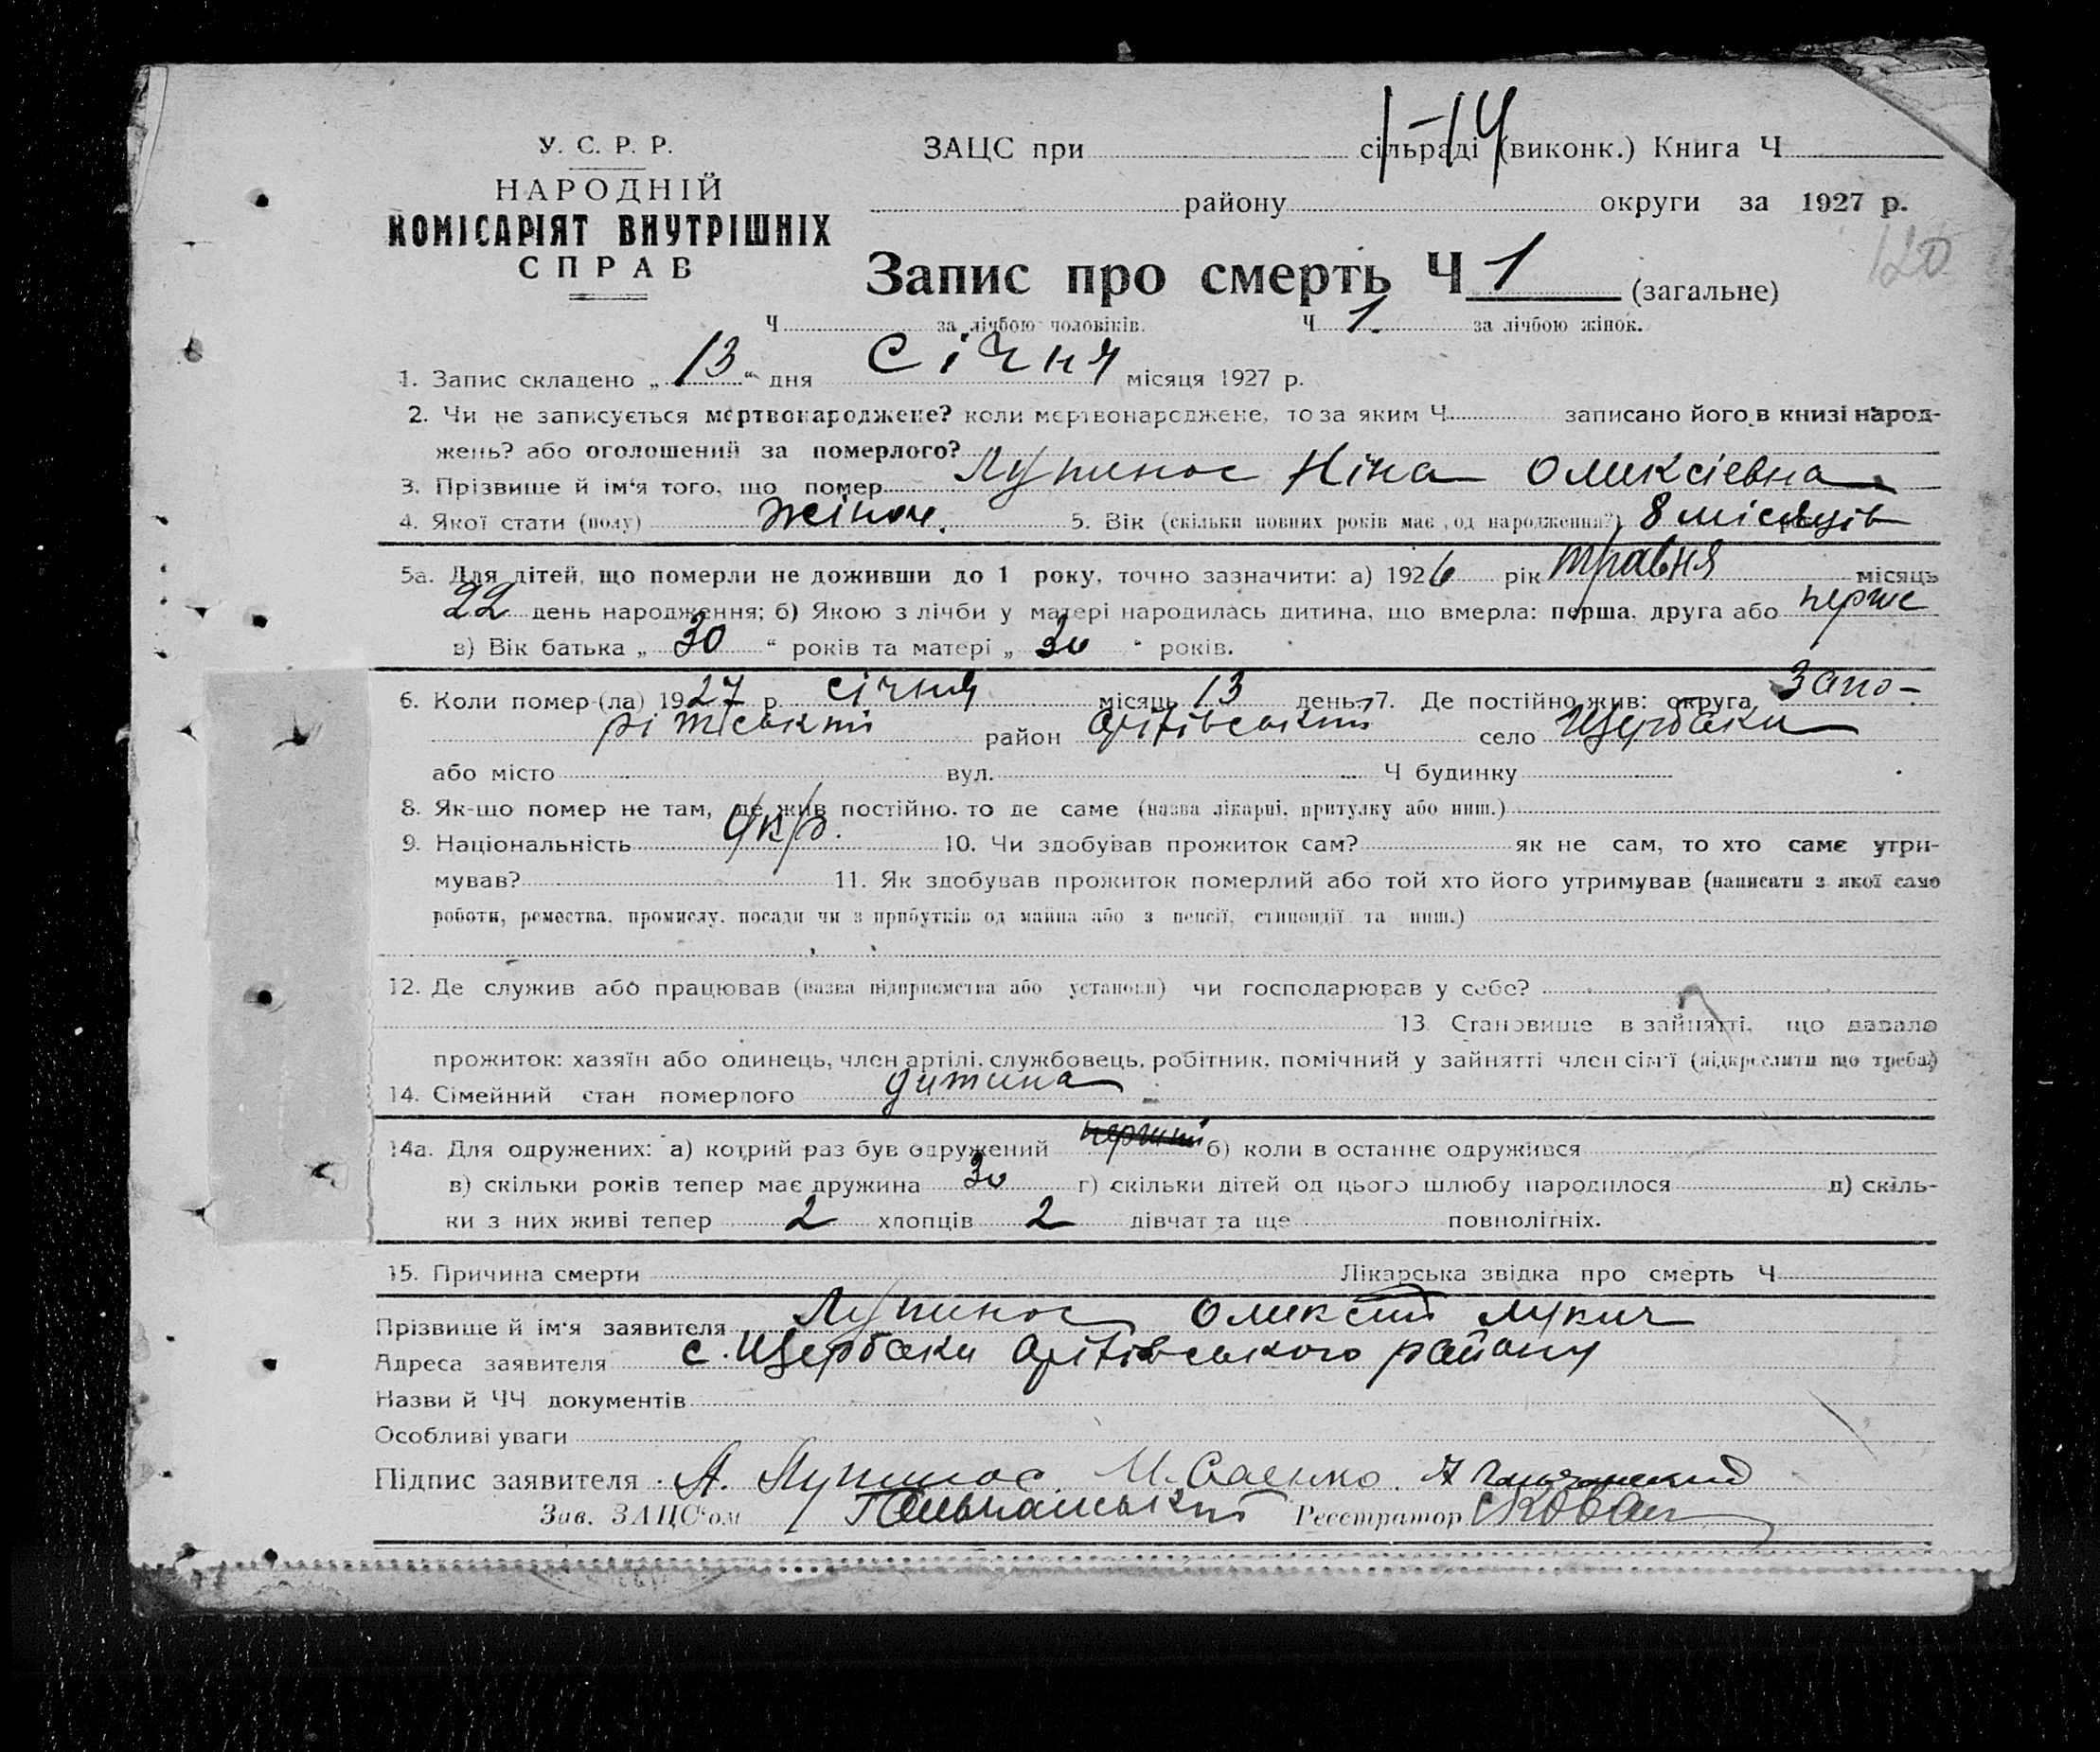 1-14
У. С. Р. Р.
ЗАЦС при сільраді (виконк.) Книга Ч
НАРОДНІЙ
району округи за 1927 р.
КОМІСАРІЯТ ВНУТРІШНІХ
120
СПРАВ
Запис про смерть Ч 1 (загальне)
Ч за лічбою чоловіків. Ч 1. за лічбою жінок.
1. Запис складено „ 13 “ дня Січня місяця 1927 р.
2. Чи не записується мертвонароджене? коли мертвонароджене, то за яким Ч записано його в книзі народ-
жень? або оголошений за померлого?
3. Прізвище й ім'я того, що помер Лупинос Ніна Оликсіевна
4. Якої стати (полу) жіноч. 5. Вік (скільки повних років має од народження?) 8 місяців
5а. Для дітей, що померли не доживши до 1 року, точно зазначити: а) 1926 рік травня місяць
22 день народження; б) Якою з лічби у матері народилась дитина, що вмерла: перша, друга або перше
в) Вік батька „ 30 “ років та матері „ 30 “ років.
6. Коли помер (ла) 1927 р. січня місяць 13 день 7. Де постійно жив: округа Запо-
ріжській район Оріхівський село Щербаки
або місто вул. Ч будинку
8. Як-що помер не там, де жив постійно, то де саме (назва лікарні, притулку або инш.)
9. Національність Укр. 10. Чи здобував прожиток сам? як не сам, то хто саме утри-
мував? 11. Як здобував прожиток померлий або той хто його утримував (написати з якої само
роботи, ремества, промислу, посади чи з прибутків од майна або з пенсії, стипендії та инш.)
12. Де служив або працював (назва підприємства або установи) чи господарював у себе?
13. Становище в зайнятті, що давало
прожиток: хазяїн або одинець, член артілі, службовець, робітник, помічний у зайнятті член сім'ї (підкреслити що треба)
14. Сімейний стан померлого дитина
14а. Для одружених: а) котрий раз був одружений перший б) коли в останнє одружився
в) скільки років тепер має дружина 30 г) скільки дітей од цього шлюбу народилося д) скіль-
ки з них живі тепер 2 хлопців 2 дівчат та ще повнолітніх.
15. Причина смерти Лікарська звідка про смерть Ч
Прізвище й ім'я заявителя Лупинос Оликсій Лукич
Адреса заявителя с. Щербаки Оріхівського району
Назви й ЧЧ документів
Особливі уваги
Підпис заявителя А. Лупинос. И. Саенко.
Зав. ЗАЦС'ом Реєстратор